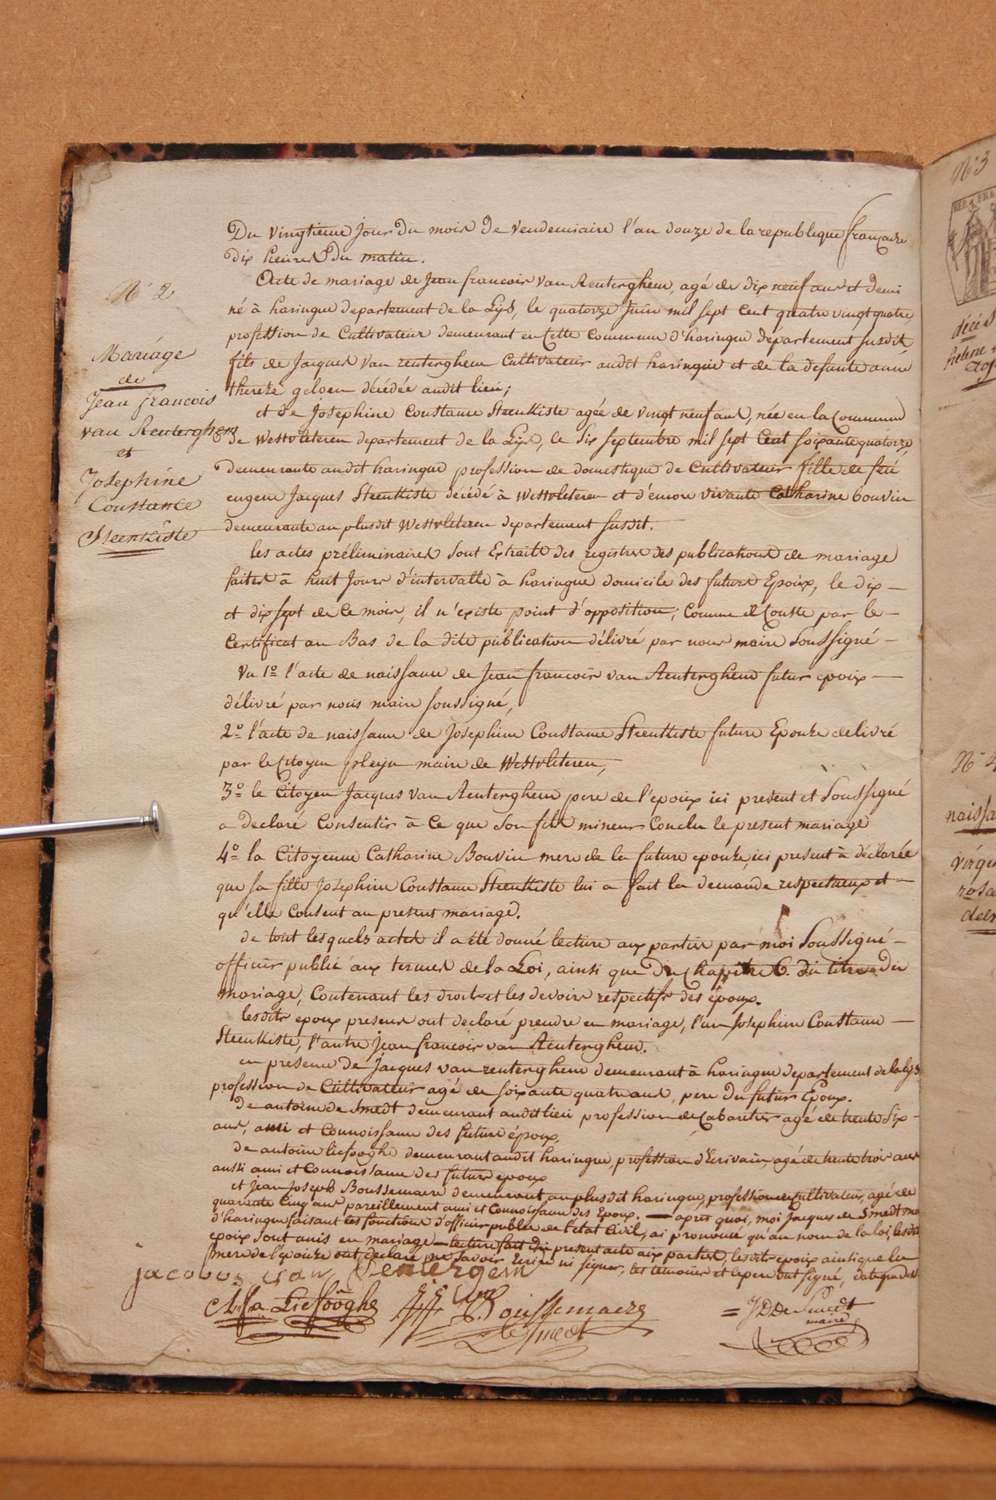 N° 2
Mariage
de
Jean francois
van Renterghem
et
Josephine
Constance
Steenkiste
Du vingtieme Jour du mois de vendemiaire l'an douze de la republique française
dix heures du matin.
Acte de mariage de Jean francois van Renterghem, agé de dix neuf ans et demi
né à haringue departement de la Lys, le quatorze Juin mil sept cent quatre vingt quatre,
profession de Cultivateur demeurant en cette commune d'haringue departement susdit
fils de Jacques van renterghem Cultivateur audit haringue et de la defunte anne
thereze geloen décédée audit lieu;
et de Josephine Constance Steenkiste agée de vingt neuf ans, née en la Commune
de Westvleteren departement de la Lys, le six septembre mil sept Cent soixante quatorze,
demeurante audit haringue profession de domestique de Cultivateur fille de feu
eugene Jacques Steenkiste décédé à Westvleteren et d'encore vivante Catharine bouvin
demeurante au plusdit Westvleteren departement susdit.
les actes préliminaires sont Extraits des registres des publications de mariage
faites à huit Jours d'intervalle à haringue domicile des futurs Epoux, le dix
et dix sept de ce mois, il n'existe point d'opposition, comme il Conste par le
Certificat au Bas de la dite publication délivré par nous maire Soussigné
Vu 1° l'acte de naissance de Jean francois van Renterghem futur epoux
délivré par nous maire soussigné,
2° l'acte de naissance de Josephine Constance Steenkiste future Epouze delivré
par le Citoyen maire de Westvleteren,
3° le Citoyen Jacques van Renterghem pere de l'epoux ici present et Soussigné
a declaré Consentir à ce que son fils mineur Conclu le present mariage
4° la Citoyenne Catharine Bouvin mere de la future epouze ici present à déclarée
que sa fille Josephine Constance Steenkiste lui a fait la demande respectueux et
qu'elle Consent au present mariage.
de tout lesquels actes il a été donné lecture aux parties par moi Soussigné
officier public aux termes de la Loi, ainsi que du Chapitre 6. du titre du
mariage, Contenant les droits et les devoirs respectifs des époux.
lesdits epoux presens ont declaré prendre en mariage, l'un Josephine Constance
Steenkiste, l'autre Jean francois van Renterghem.
en presence de Jacques van renterghem demeurant à haringue departement de la Lys
profession de Cultivateur agé de soixante quatre ans, pere du futur Epoux.
De antoine de Smedt demeurant audit lieu profession de Cabaretier agé de trente six
ans, ami et connoissance des futurs époux,
de antoine liefooghe demeurant audit haringue, profession d'Ecrivain, agé de trente trois ans
aussi ami et connoissance des futurs epoux
et Jean Joseph Boussemaere demeurant au plusdit haringue, profession de Cultivateur, agé de
quarante Cinq ans pareillement ami et connoissance des Epoux. après quoi, moi Jacques de Smedt maire
d'haringue faisant les fonctions d'officier public de l'etat Civil, ai prononcé qu'au nom de la loi, lesdits
epoux sont unis en mariage lecture fait du present acte aux parties, lesdits epoux ainsi que la
mere de l'epouze ont declaré ne savoir Ecrire ni signer, les temoins et le pere ont signé,
jacobus van Rentergem
A. Fa Liefooghe
Boussemaere
de Smedt
J D De Smedt
maire
N° 3
décés
N° 4
naissa